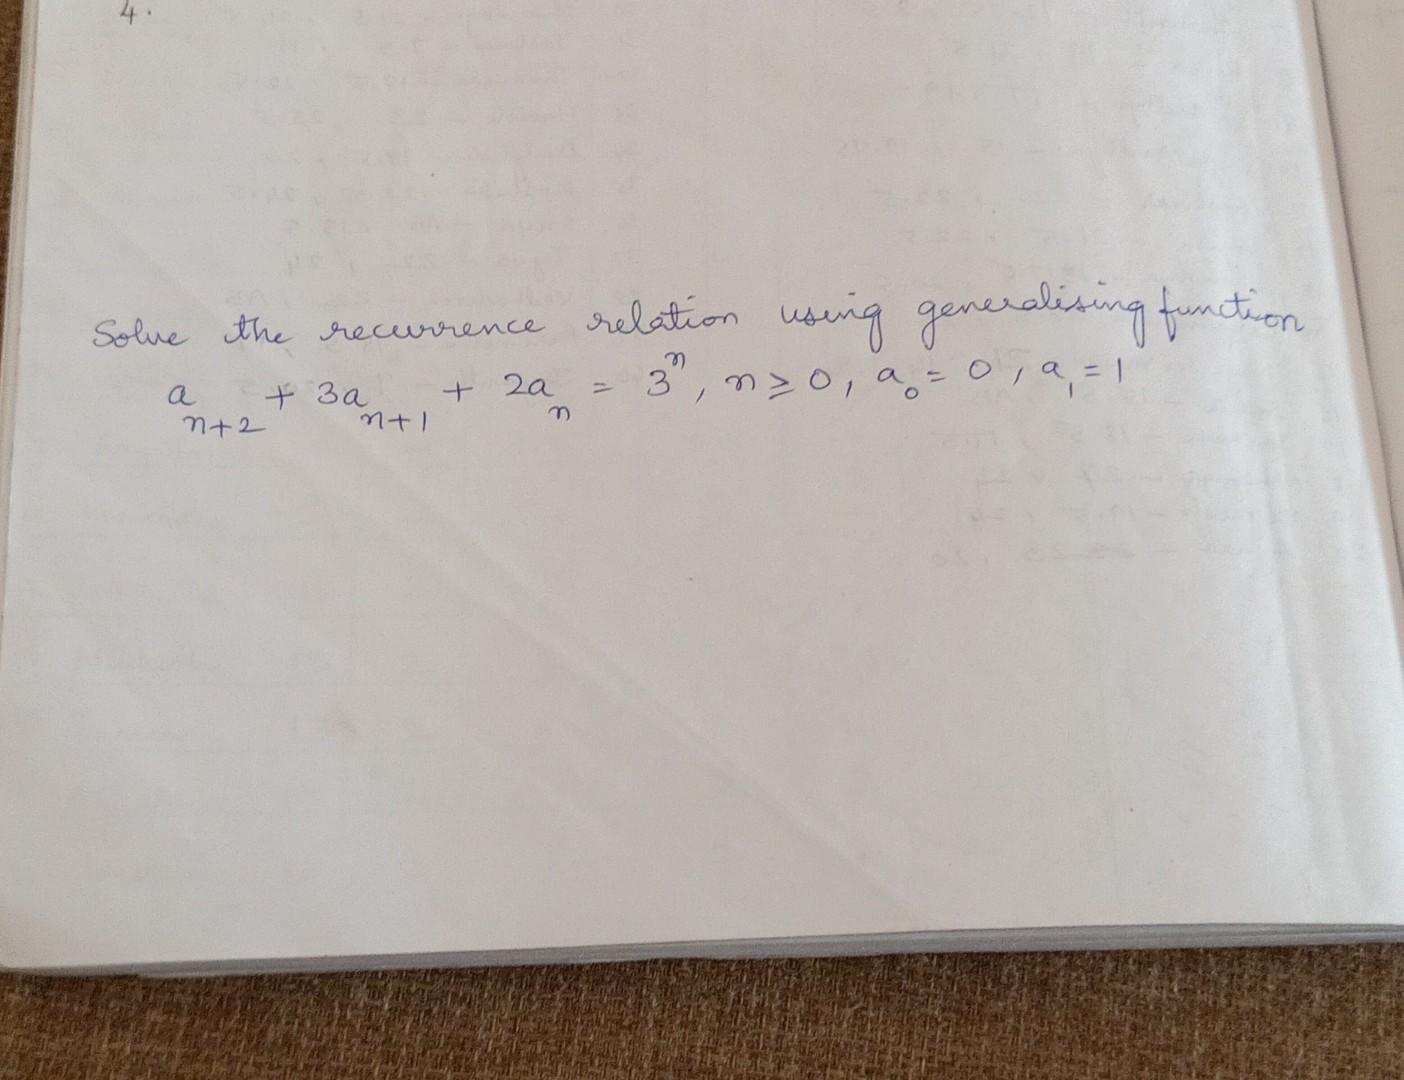 4.
Solve the recurrence relation using generalising function
a_{n+2} + 3a_{n+1} + 2a_n = 3^n, n ≥ 0, a_0 = 0, a_1 = 1